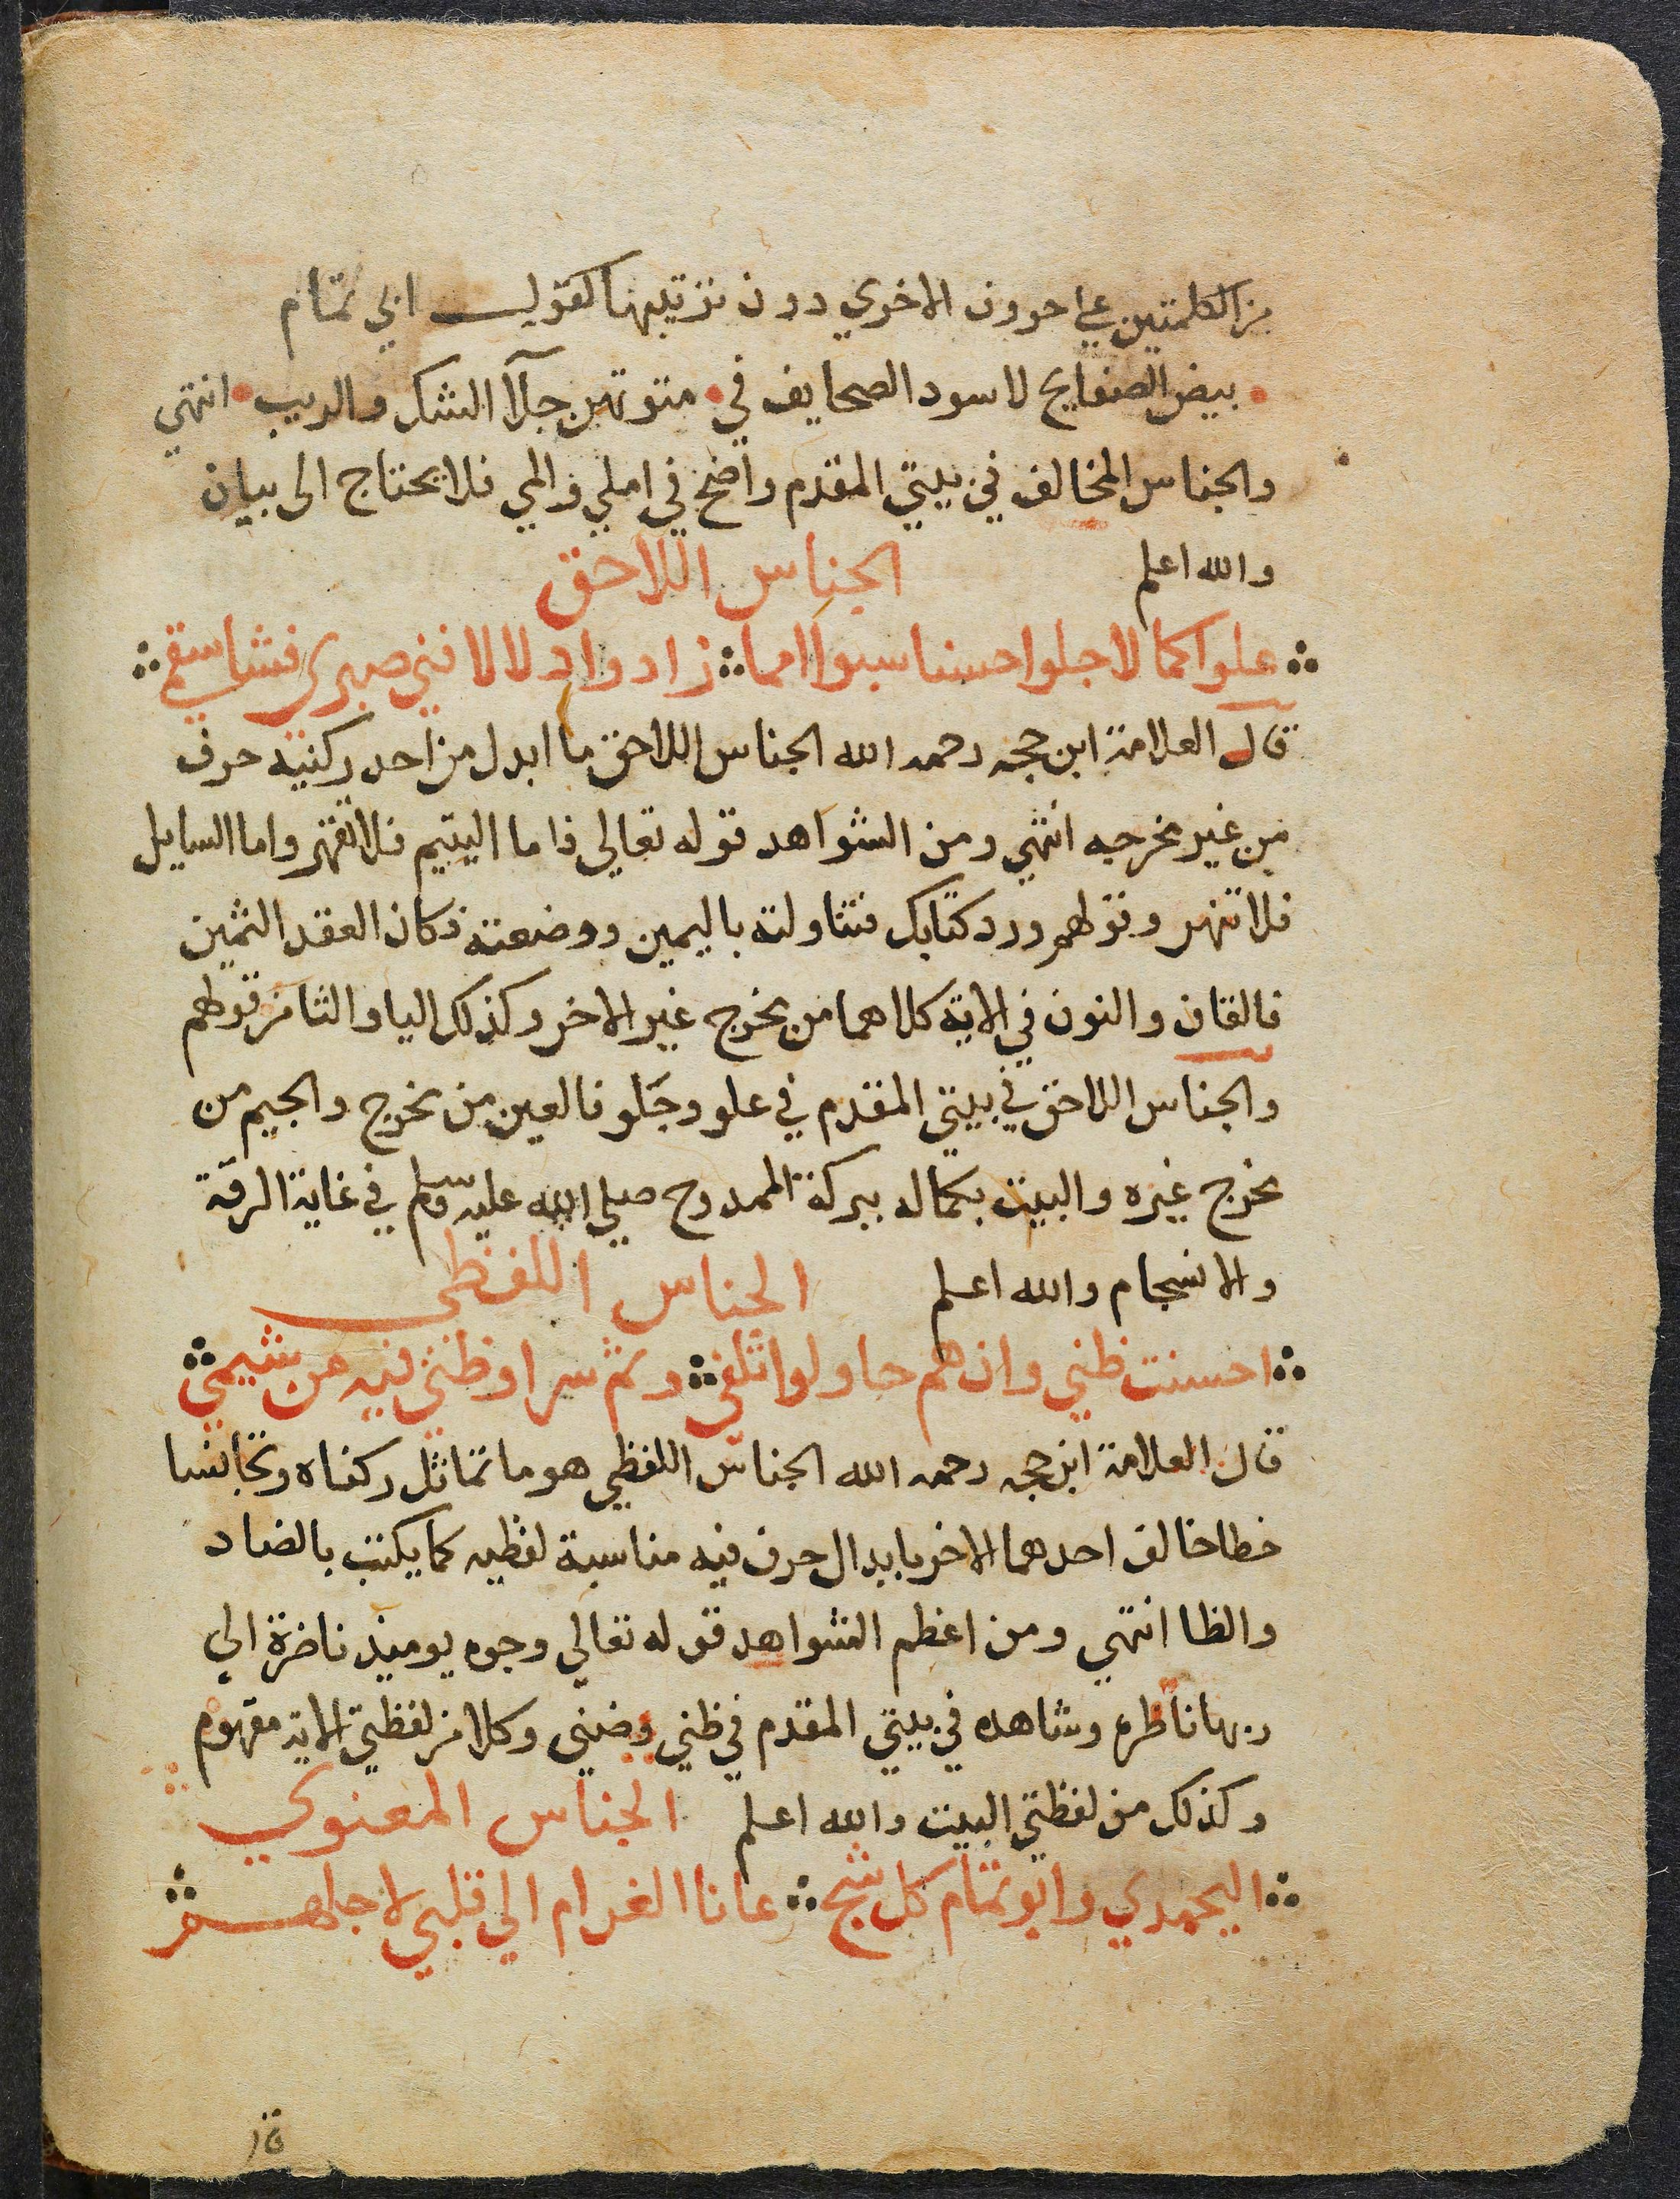 من الكلمتين علي حروف الاخري دون ترتيبها كقول ابي تمام
بيض الصفايح لا سود الصحايف في متونهن جلآ الشك والريب انتهي
والجناس المخالف في بيتي المقدم واضح في املي والمي فلا يحتاج الى بيان
والله اعلم الجناس اللاحق
علوا كمالا جلوا حسنا سبوا امما زادوا دلالا فني صبري فشا سقمي
قال العلامة ابن حجه رحمه الله الجناس اللاحق ما ابدل من احد ركنيه حرف
من غير مخرجه انتهي ومن الشواهد قوله تعالي فاما اليتيم فلا تقهر واما السايل
فلا تنهر وقولهم ورد كتابك فتناولته باليمين ووضعته فكان العقد الثمين
فالقاف والنون في الاية كلاهما من مخرج غير الاخر وكذلك اليا والثا من قولهم
والجناس اللاحق في بيتي المقدم في علو وجلو فالعين من مخرج والجيم من
مخرج غيره والبيت بكماله ببركة الممدوح صلي الله عليه وسلم في غاية الرقة
والانسجام والله اعلم الجناس اللفظي
احسنت ظني وان هم حاولوا تلفي وتم سرا وظني فيه من شيمي
قال العلامة ابن حجه رحمه الله الجناس اللفظي هو ما تماثل ركناه وتجانسا
خطا خالف احدهما الاخر بابدال حرف فيه مناسبة لفظيه كما يكتب بالضاد
والظا انتهي ومن اعظم الشواهد قوله تعالي وجوه يوميذ ناضرة الي
ربها ناظره وشاهده في بيتي المقدم في ظني وضني وكلا من لفظتي الاية مفهوم
وكذلك من لفظتي البيت والله اعلم الجناس المعنوي
اليحمدي وابو تمام كل شج عانا الغرام الي قلبي لاجلهم
قا